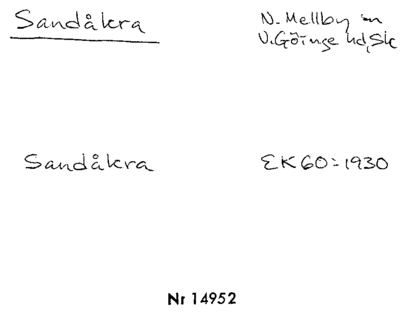 Sandåkra
N. Mellby sn
V. Göinge hd, Sk
Sandåkra
EK60:1930
Nr 14952